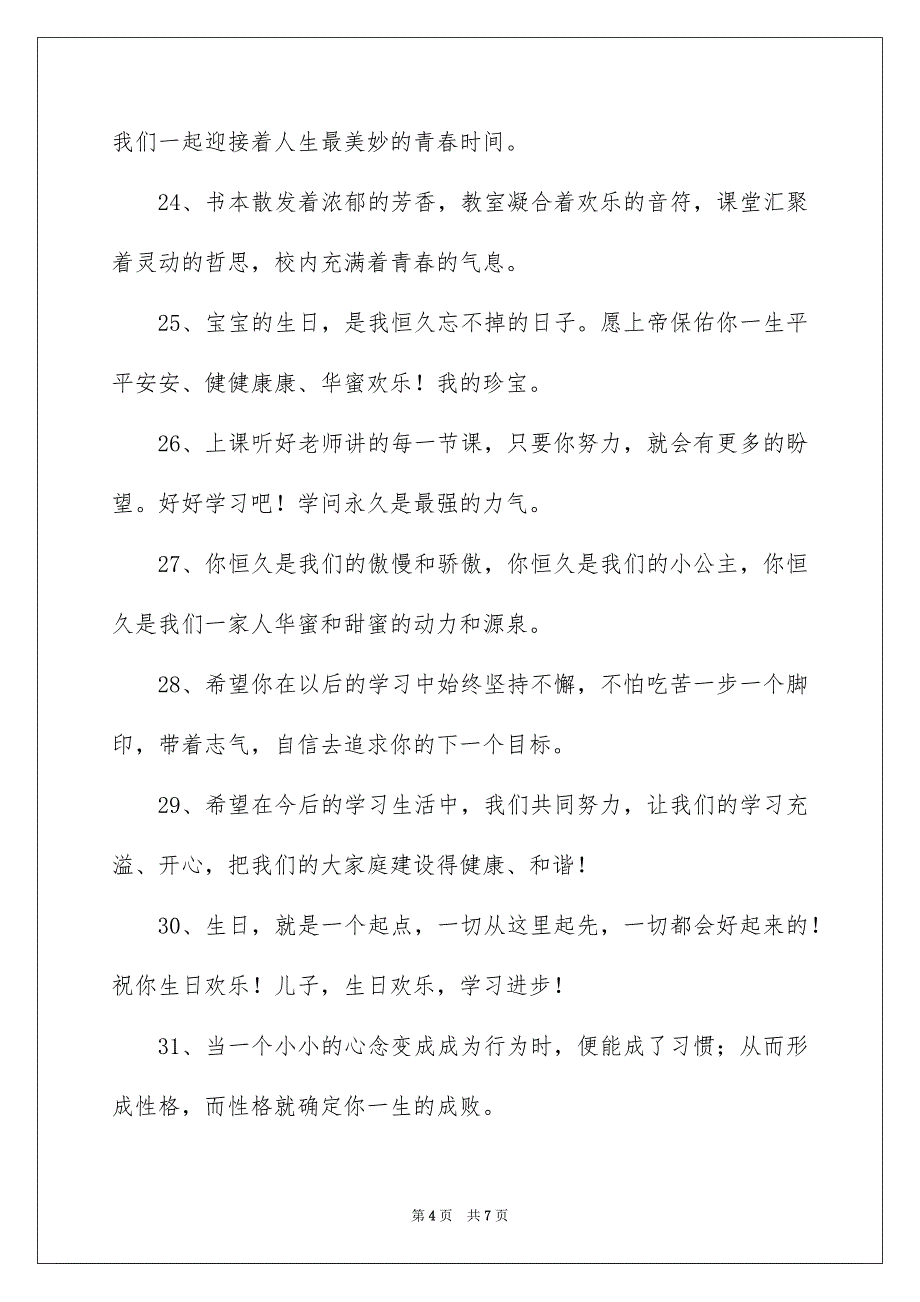 我们一起迎接着人生最美妙的青春时间。
24、书本散发着浓郁的芳香，教室凝合着欢乐的音符，课堂汇聚
着灵动的哲思，校内充满着青春的气息。
25、宝宝的生日，是我恒久忘不掉的日子。愿上帝保佑你一生平
平安安、健健康康、华蜜欢乐！我的珍宝。
26、上课听好老师讲的每一节课，只要你努力，就会有更多的盼
望。好好学习吧！学问永久是最强的力气。
27、你恒久是我们的傲慢和骄傲，你恒久是我们的小公主，你恒
久是我们一家人华蜜和甜蜜的动力和源泉。
28、希望你在以后的学习中始终坚持不懈，不怕吃苦一步一个脚
印，带着志气，自信去追求你的下一个目标。
29、希望在今后的学习生活中，我们共同努力，让我们的学习充
溢、开心，把我们的大家庭建设得健康、和谐！
30、生日，就是一个起点，一切从这里起先，一切都会好起来的！
祝你生日欢乐！儿子，生日欢乐，学习进步！
31、当一个小小的心念变成成为行为时，便能成了习惯；从而形
成性格，而性格就确定你一生的成败。
第4页 共7页